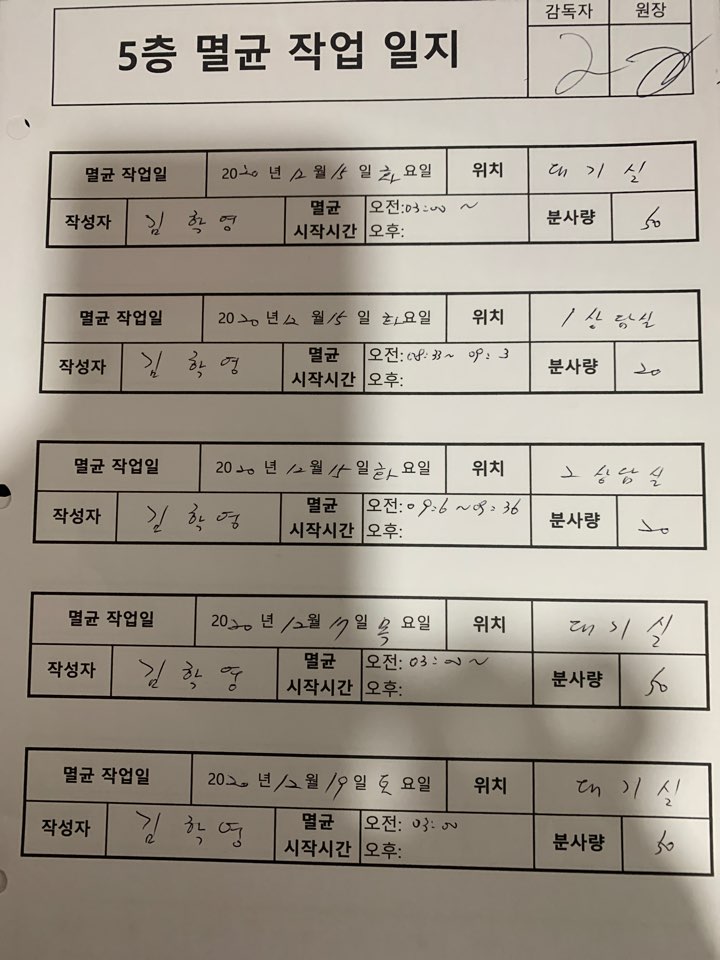 감독자 원장
5층 멸균 작업 일지
멸균 작업일 2020년 12월 15일 화요일 위치 대기실
작성자 김학영 멸균 시작시간 오전:03:00 ~ 분사량 50
오후:
멸균 작업일 2020년 12월 15일 화요일 위치 1상담실
작성자 김학영 멸균 시작시간 오전:08:33~ 09:3 분사량 20
오후:
멸균 작업일 2020년 12월 15일 화요일 위치 2상담실
작성자 김학영 멸균 시작시간 오전:09:6 ~09:36 분사량 20
오후:
멸균 작업일 2020년 12월 17일 목요일 위치 대기실
작성자 김학영 멸균 시작시간 오전: 03:00~ 분사량 50
오후:
멸균 작업일 2020년 12월 19일 토요일 위치 대기실
작성자 김학영 멸균 시작시간 오전: 03:00 분사량 50
오후: